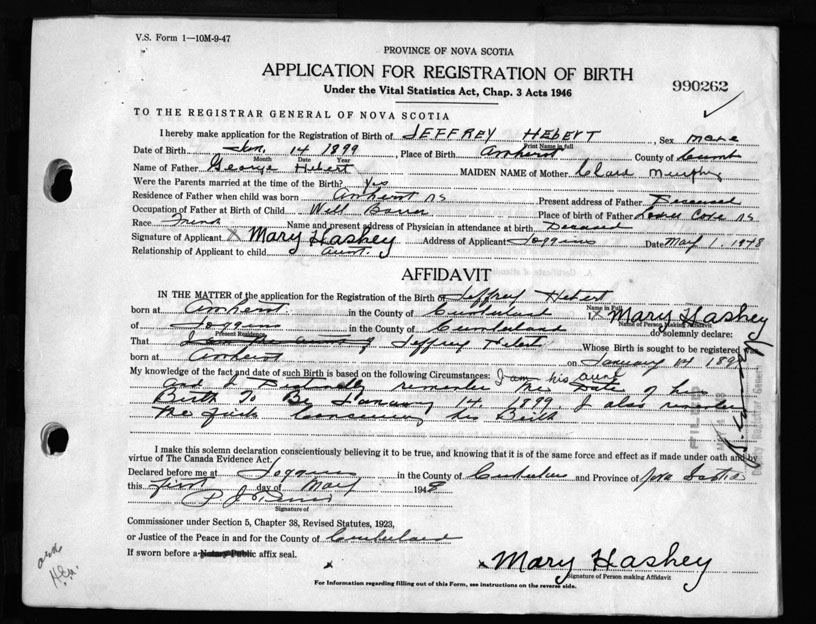 V.S. Form 1—10M-9-47
PROVINCE OF NOVA SCOTIA
APPLICATION FOR REGISTRATION OF BIRTH
990262
Under the Vital Statistics Act, Chap. 3 Acts 1946
TO THE REGISTRAR GENERAL OF NOVA SCOTIA
I hereby make application for the Registration of Birth of JEFFREY HEBERT, Sex male
Print Name in full
Date of Birth Jan. 14 1899, Place of Birth Amherst County of Cumb
Month Date Year
Name of Father George Hebert MAIDEN NAME of Mother Clara Murphy
Were the Parents married at the time of the Birth? Yes
Residence of Father when child was born Amherst NS Present address of Father Deceased
Occupation of Father at Birth of Child Well Place of birth of Father Cove NS
Race French Name and present address of Physician in attendance at birth Deceased
Signature of Applicant X Mary Hashey Address of Applicant Joggins Date May 1, 1948
Relationship of Applicant to child aunt.
AFFIDAVIT
IN THE MATTER of the application for the Registration of the Birth of Jeffrey Hebert
Name in Full
born at Amherst in the County of Cumberland I, X Mary Hashey
Name of Person Making Affidavit
of Joggins in the County of Cumberland do solemnly declare:
Present Residence
That I am the aunt of Jeffrey Hebert Whose Birth is sought to be registered was
born at Amherst on January 14 1899
My knowledge of the fact and date of such Birth is based on the following Circumstances: I am his aunt
and I Distinctly remember the Date of his
Birth To Be January 14, 1899. I also
The Concerning his Birth
FILED
I make this solemn declaration conscientiously believing it to be true, and knowing that it is of the same force and effect as if made under oath and by
virtue of The Canada Evidence Act.
Declared before me at Joggins in the County of Cumberland and Province of Nova Scotia
this first day of May 1948
Signature of
Commissioner under Section 5, Chapter 38, Revised Statutes, 1923,
or Justice of the Peace in and for the County of Cumberland
If sworn before a Notary Public affix seal.
x Mary Hashey
Signature of Person making Affidavit
For Information regarding filling out of this Form, see instructions on the reverse side.